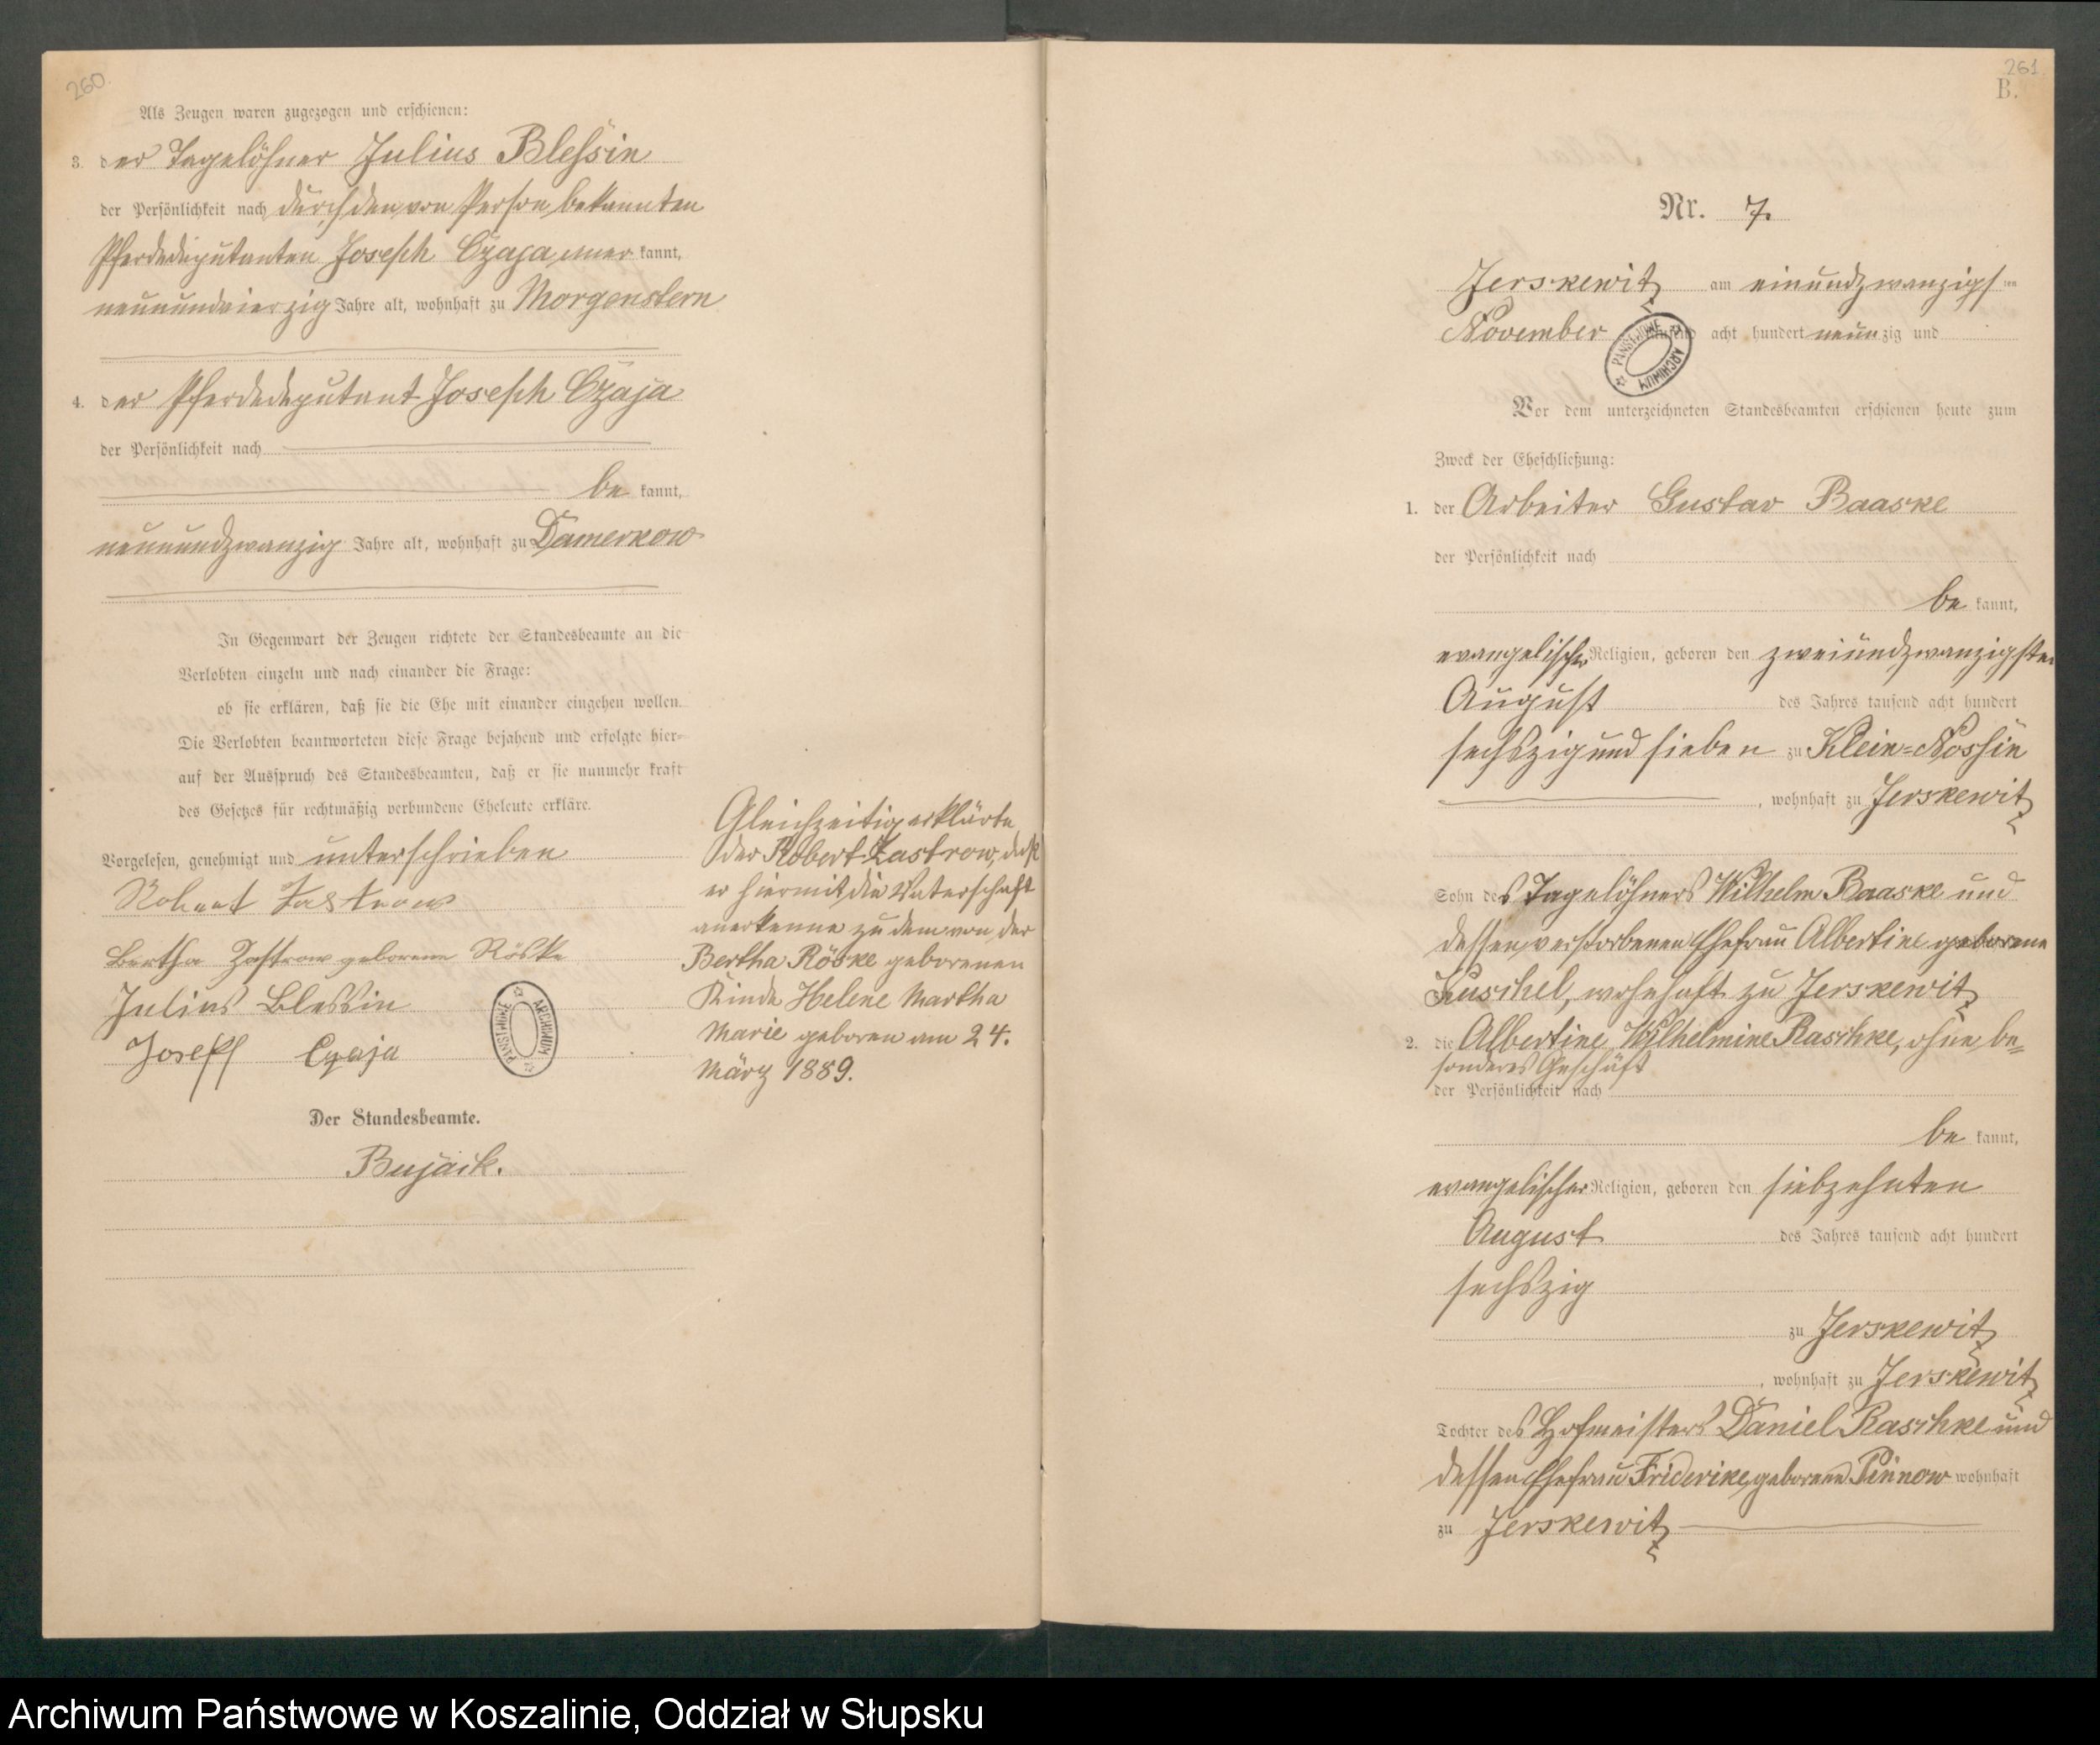 260.
Als Zeugen waren zugezogen und erschienen:
3. der Tagelöhner Julius Blessin
der Persönlichkeit nach durch den von Person bekannten
Pferdedeputanten Joseph Czaja aner kannt,
neunundvierzig Jahre alt, wohnhaft zu Morgenstern
4. der Pferdedeputant Joseph Czaja
der Persönlichkeit nach
be kannt,
neunundzwanzig Jahre alt, wohnhaft zu Damerkow
In Gegenwart der Zeugen richtete der Standesbeamte an die
Verlobten einzeln und nach einander die Frage:
ob sie erklären, daß sie die Ehe mit einander eingehen wollen.
Die Verlobten beantworteten diese Frage bejahend und erfolgte hier-
auf der Ausspruch des Standesbeamten, daß er sie nunmehr kraft
des Gesetzes für rechtmäßig verbundene Eheleute erkläre.
Vorgelesen, genehmigt und unterschrieben
Robert Zastrow
Bertha Zastrow geborene Röske
Julius Blessin
Joseph Czaja
PAŃSTWOWE ARCHIWUM
Der Standesbeamte.
Bujack.
Gleichzeitig erklärte
der Robert Zastrow, daß
er hiermit die Vaterschaft
anerkenne zu dem von der
Bertha Röske geborenen
Kinde Helene Martha
Marie geboren am 24.
März 1889.
261.
B.
Nr. 7.
Jerskewitz am einundzwanzigsten
November tausend acht hundert neunzig und
PAŃSTWOWE ARCHIWUM
Vor dem unterzeichneten Standesbeamten erschienen heute zum
Zweck der Eheschließung:
1. der Arbeiter Gustav Baaske
der Persönlichkeit nach
be kannt,
evangelischer Religion, geboren den zweiundzwanzigsten
August des Jahres tausend acht hundert
sechszig und sieben zu Klein=Nossin
, wohnhaft zu Jerskewitz
Sohn des Tagelöhners Wilhelm Baaske und
dessen verstorbenen Ehefrau Albertine geborene
Kuschel, wohnhaft zu Jerskewitz
2. die Albertine Wilhelmine Raschke, ohne be=
sonderes Geschäft
der Persönlichkeit nach
be kannt,
evangelischer Religion, geboren den siebzehnten
August des Jahres tausend acht hundert
sechszig
zu Jerskewitz
, wohnhaft zu Jerskewitz
Tochter des Hofmeisters Daniel Raschke und
dessen Ehefrau Friderike geborene Pinnow wohnhaft
zu Jerskewitz
Archiwum Państwowe w Koszalinie, Oddział w Słupsku